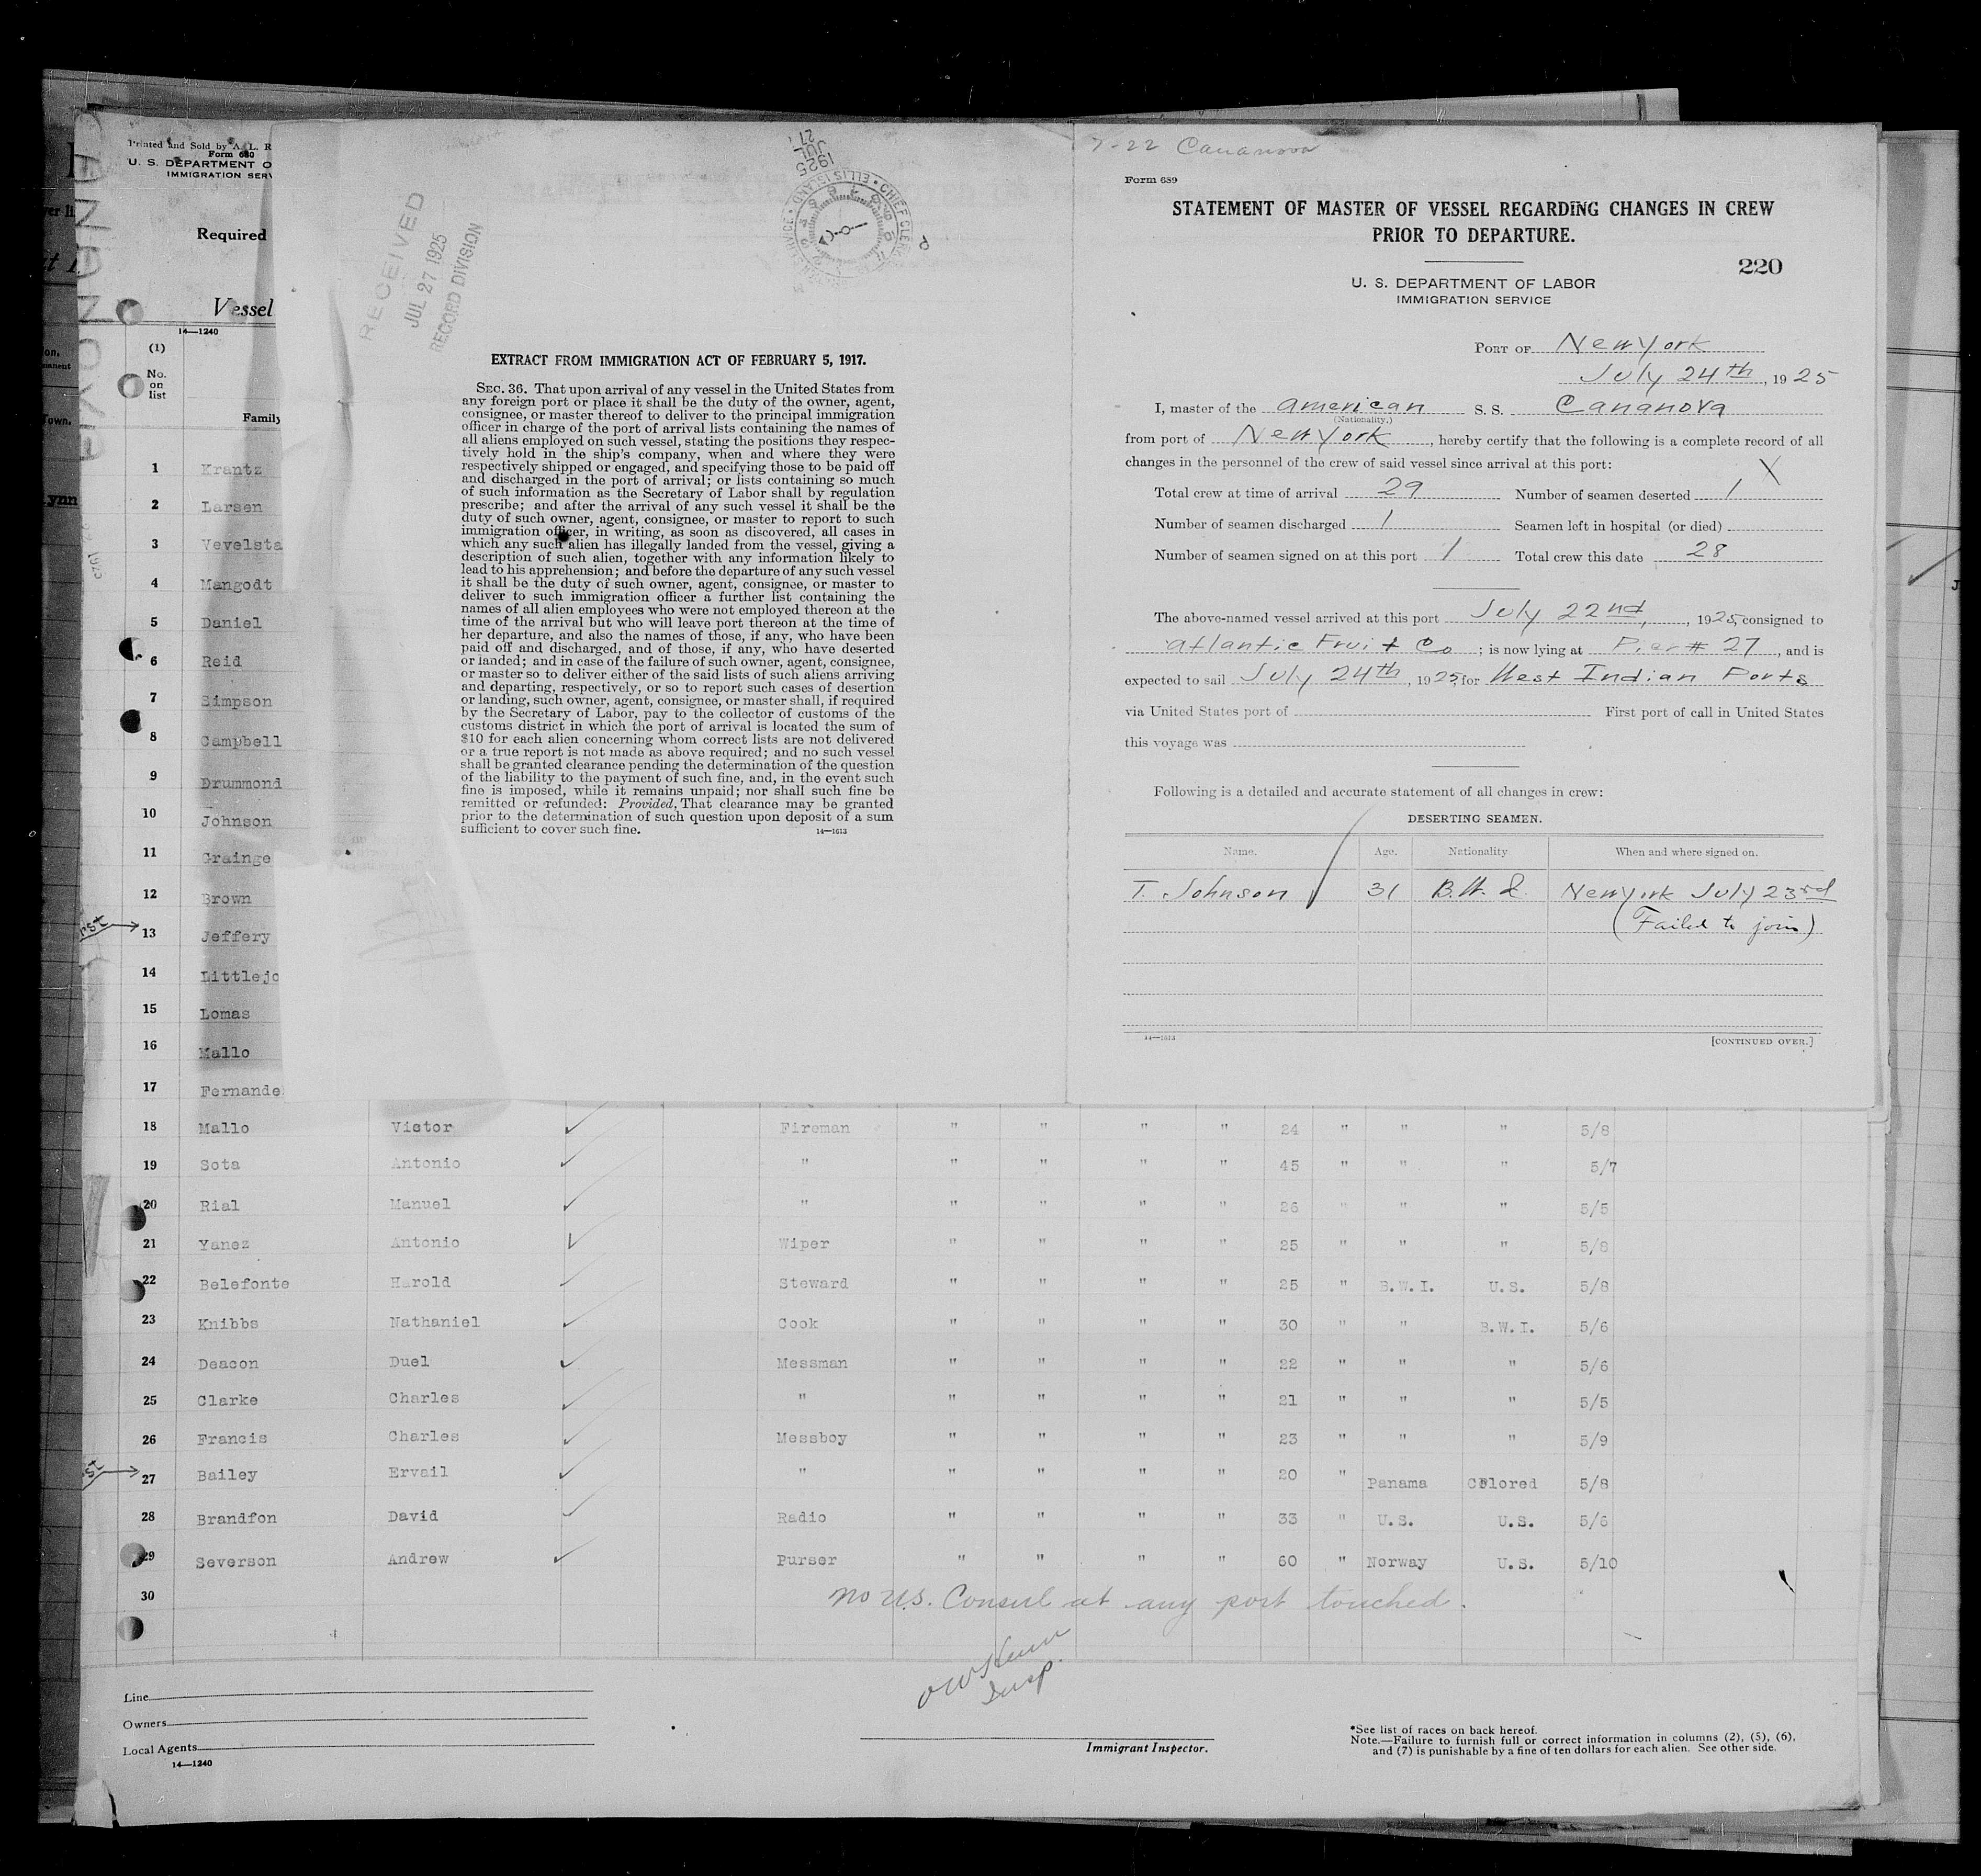 Printed and Sold by A. L. R
Form 680
U. S. DEPARTMENT O
IMMIGRATION SERV
Required
Vessel
14—1240
(1)
No.
on
list
Family
1 Krantz
2 Larsen
3 Vevelsta
4 Mangodt
5 Daniel
6 Reid
7 Simpson
8 Campbell
9 Drummond
10 Johnson
11 Grainge
12 Brown
13 Jeffery
14 Littlejo
15 Lomas
16 Mallo
17 Fernande
RECEIVED
JUL 27 1925
RECORD DIVISION
1925
JUL
27
ELLIS ISLAND • CHIEF CLERK
EXTRACT FROM IMMIGRATION ACT OF FEBRUARY 5, 1917.
SEC. 36. That upon arrival of any vessel in the United States from
any foreign port or place it shall be the duty of the owner, agent,
consignee, or master thereof to deliver to the principal immigration
officer in charge of the port of arrival lists containing the names of
all aliens employed on such vessel, stating the positions they respec-
tively hold in the ship's company, when and where they were
respectively shipped or engaged, and specifying those to be paid off
and discharged in the port of arrival; or lists containing so much
of such information as the Secretary of Labor shall by regulation
prescribe; and after the arrival of any such vessel it shall be the
duty of such owner, agent, consignee, or master to report to such
immigration officer, in writing, as soon as discovered, all cases in
which any such alien has illegally landed from the vessel, giving a
description of such alien, together with any information likely to
lead to his apprehension; and before the departure of any such vessel
it shall be the duty of such owner, agent, consignee, or master to
deliver to such immigration officer a further list containing the
names of all alien employees who were not employed thereon at the
time of the arrival but who will leave port thereon at the time of
her departure, and also the names of those, if any, who have been
paid off and discharged, and of those, if any, who have deserted
or landed; and in case of the failure of such owner, agent, consignee,
or master so to deliver either of the said lists of such aliens arriving
and departing, respectively, or so to report such cases of desertion
or landing, such owner, agent, consignee, or master shall, if required
by the Secretary of Labor, pay to the collector of customs of the
customs district in which the port of arrival is located the sum of
$10 for each alien concerning whom correct lists are not delivered
or a true report is not made as above required; and no such vessel
shall be granted clearance pending the determination of the question
of the liability to the payment of such fine, and, in the event such
fine is imposed, while it remains unpaid; nor shall such fine be
remitted or refunded: Provided, That clearance may be granted
prior to the determination of such question upon deposit of a sum
sufficient to cover such fine. 14—1613
7-22 Cananova
Form 689
STATEMENT OF MASTER OF VESSEL REGARDING CHANGES IN CREW
PRIOR TO DEPARTURE.
220
U. S. DEPARTMENT OF LABOR
IMMIGRATION SERVICE
PORT OF New York
July 24th, 1925
I, master of the american S. S. Cananova
(Nationality.)
from port of New York, hereby certify that the following is a complete record of all
changes in the personnel of the crew of said vessel since arrival at this port:
Total crew at time of arrival 29 Number of seamen deserted 1 X
Number of seamen discharged 1 Seamen left in hospital (or died)
Number of seamen signed on at this port 1 Total crew this date 28
The above-named vessel arrived at this port July 22nd, 1925, consigned to
atlantic Fruit Co; is now lying at Pier # 27, and is
expected to sail July 24th, 1925, for West Indian Ports
via United States port of First port of call in United States
this voyage was
Following is a detailed and accurate statement of all changes in crew:
DESERTING SEAMEN.
Name. Age. Nationality When and where signed on.
T. Johnson 31 B.W.I. New York July 23rd
(Failed to join)
14—1613 [CONTINUED OVER.]
18 Mallo Victor Fireman " " " " 24 " " " 5/8
19 Sota Antonio " " " " " 45 " " " 5/7
20 Rial Manuel " " " " " 26 " " " 5/5
21 Yanez Antonio Wiper " " " " 25 " " " 5/8
22 Belefonte Harold Steward " " " " 25 " B.W.I. U.S. 5/8
23 Knibbs Nathaniel Cook " " " " 30 " " B.W.I. 5/6
24 Deacon Duel Messman " " " " 22 " " " 5/6
25 Clarke Charles " " " " " 21 " " " 5/5
26 Francis Charles Messboy " " " " 23 " " " 5/9
27 Bailey Ervail " " " " " 20 " Panama Colored 5/8
28 Brandfon David Radio " " " " 33 " U.S. U.S. 5/6
29 Severson Andrew Purser " " " " 60 " Norway U.S. 5/10
30 No U.S. Consul at any port touched.
Insp.
Line
Owners
Local Agents
14—1240
Immigrant Inspector.
*See list of races on back hereof.
Note.—Failure to furnish full or correct information in columns (2), (5), (6),
and (7) is punishable by a fine of ten dollars for each alien. See other side.